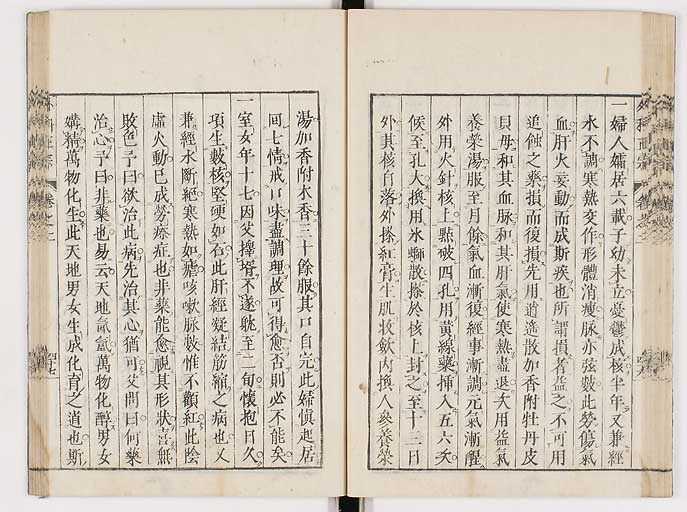 一婦人孀居六載子幼未立憂鬱成核半年又兼經
水不調寒熱交作形體消瘦脉亦弦數此勞傷氣
血肝火妄動而成斯疾也所謂損者益之不可用
追蝕之藥損而復損先用逍遙散加香附牡丹皮
貝母和其血脉和其肝氣使寒熱盡退又用益氣
養榮湯服至月餘氣血漸復經事漸調元氣漸醒
外用火針核上點破四孔用黃線藥挿入五六次
候至孔大換用氷螄散搽於核上封之至十二日
外其核自落外搽紅膏生肌收歛内換人參養榮
湯加香附木香三十餘服其口自完此婦愼起居
間七情戒口味盡調理故可得愈否則必不能矣
一室女年十七因父擇婿不遂躭至二旬懷抱日久
項生數核堅硬如石此肝經凝結筋縮之病也又
兼經水斷絕寒熱如瘧咳嗽脉數惟不顴紅此陰
虛火動已成勞瘵症也非藥能愈視其形狀喜無
敗色予曰欲治此病先治其心猶可父問曰何藥
治心予曰非藥也易云天地氤氳萬物化醇男女
媾精萬物化生此天地男女生成化育之道也斯
外科正宗
卷之二